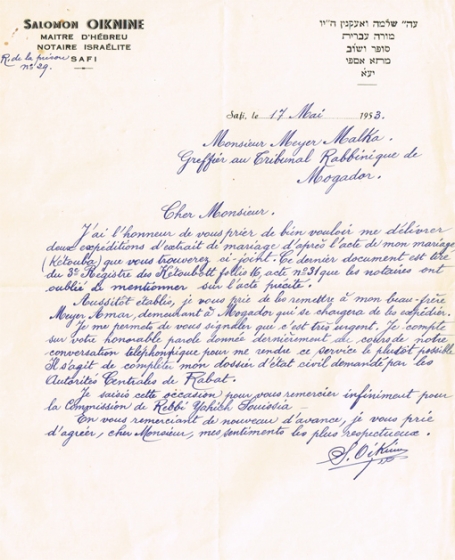 SALOMON OIKNINE
MAITRE D'HÉBREU
NOTAIRE ISRAÉLITE
SAFI
R. de la prison
n° 29.
עה״י שלמה ואעקנין ה״יו
מורה עברית
סופר ושוב
מתא אספי
יע״א
Safi, le 17 Mai 1953.
Monsieur Meyer Malka.
Greffier au Tribunal Rabbinique de
Mogador.
Cher Monsieur.
J'ai l'honneur de vous prier de bien vouloir me délivrer
deux expéditions d'extrait de mariage d'après l'acte de mon mariage
(Kétouba) que vous trouverez ci-joint. Ce dernier document est tiré
du 3° Registre des Ketoubott follio 16, acte n° 31 que les notaires ont
oublié de mentionner sur l'acte précité.
Aussitôt établis, je vous prie de les remettre à mon beau-frère
Meyer Amar, demeurant à Mogador qui se chargera de les expédier.
Je me permets de vous signaler que c'est très urgent. Je compte
sur votre honorable parole donnée dernièrement au cours de notre
conversation téléphonique pour me rendre ce service le plustôt possible
Il s'agit de completer mon dossier d'état civil demandé par les
Autorités Centrales de Rabat.
Je saisis cette occasion pour vous remercier infiniment pour
la Commission de Rebbi Yahieh Souissia
En vous remerciant de nouveau d'avance, je vous prie
d'agréer, cher Monsieur, mes sentiments les plus respectueux.
S. Oiknine